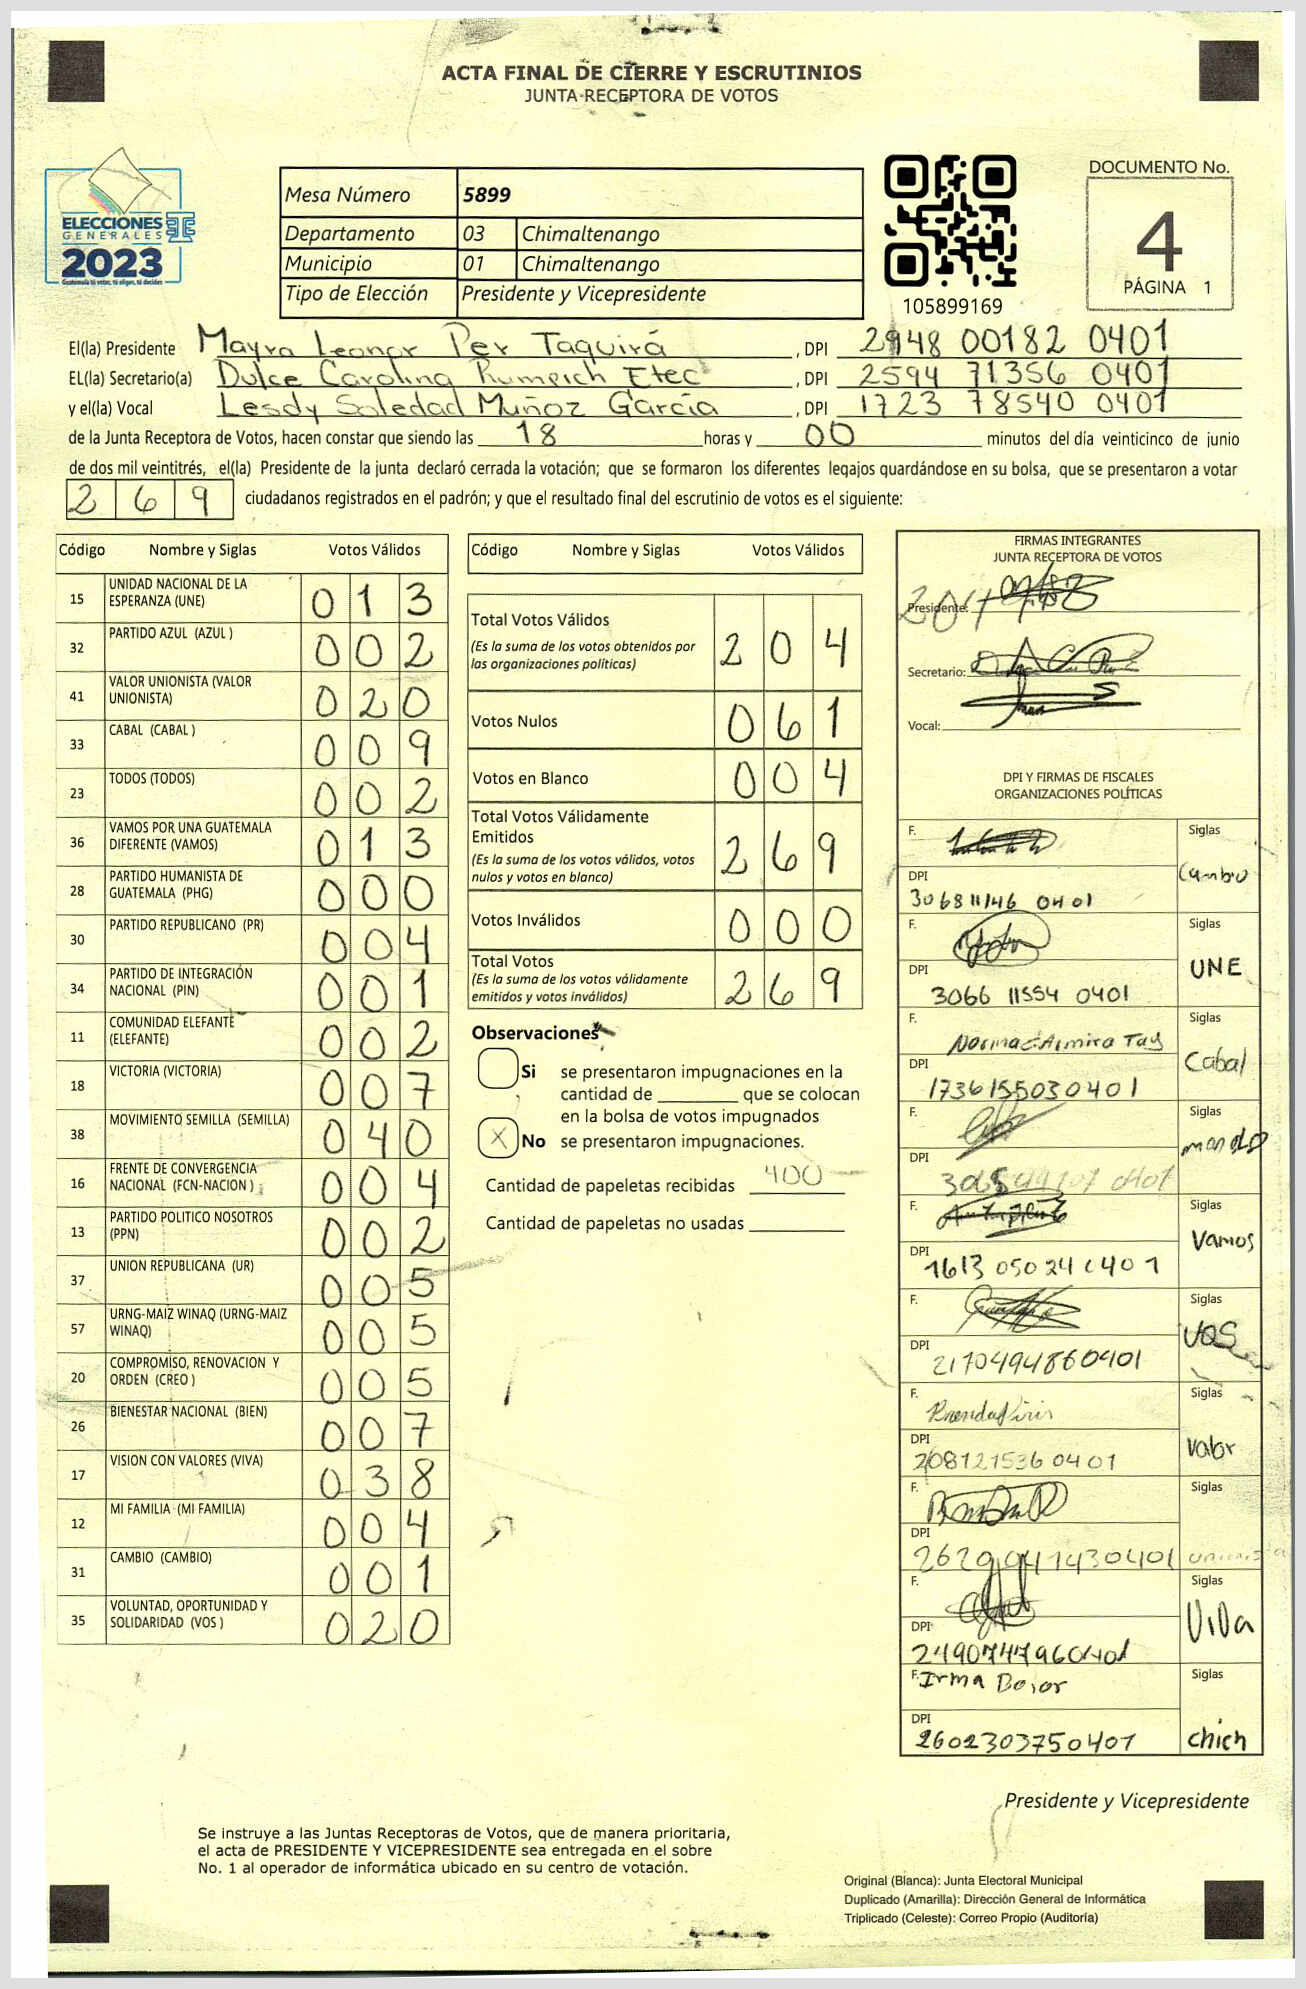 ACTA FINAL DE CIERRE Y ESCRUTINIOS
JUNTA RECEPTORA DE VOTOS
ELECCIONES
GENERALES
2023
Guatemala tú votas, tú eliges, tú decides
Mesa Número 5899
Departamento 03 Chimaltenango
Municipio 01 Chimaltenango
Tipo de Elección Presidente y Vicepresidente
105899169
DOCUMENTO No.
4
PÁGINA 1
El(la) Presidente Mayra Leonor Per Taquirá, DPI 2948 00182 0401
EL(la) Secretario(a) Dulce Carolina Rumpich Etec, DPI 2594 71356 0401
y el(la) Vocal Lesdy Soledad Muñoz García, DPI 1723 78540 0401
de la Junta Receptora de Votos, hacen constar que siendo las 18 horas y 00 minutos del día veinticinco de junio
de dos mil veintitrés, el(la) Presidente de la junta declaró cerrada la votación; que se formaron los diferentes legajos quardándose en su bolsa, que se presentaron a votar
269 ciudadanos registrados en el padrón; y que el resultado final del escrutinio de votos es el siguiente:
Código Nombre y Siglas Votos Válidos
15 UNIDAD NACIONAL DE LA ESPERANZA (UNE) 013
32 PARTIDO AZUL (AZUL ) 002
41 VALOR UNIONISTA (VALOR UNIONISTA) 020
33 CABAL (CABAL ) 009
23 TODOS (TODOS) 002
36 VAMOS POR UNA GUATEMALA DIFERENTE (VAMOS) 013
28 PARTIDO HUMANISTA DE GUATEMALA (PHG) 000
30 PARTIDO REPUBLICANO (PR) 004
34 PARTIDO DE INTEGRACIÓN NACIONAL (PIN) 001
11 COMUNIDAD ELEFANTE (ELEFANTE) 002
18 VICTORIA (VICTORIA) 007
38 MOVIMIENTO SEMILLA (SEMILLA) 040
16 FRENTE DE CONVERGENCIA NACIONAL (FCN-NACION ) 004
13 PARTIDO POLITICO NOSOTROS (PPN) 002
37 UNION REPUBLICANA (UR) 005
57 URNG-MAIZ WINAQ (URNG-MAIZ WINAQ) 005
20 COMPROMISO, RENOVACION Y ORDEN (CREO ) 005
26 BIENESTAR NACIONAL (BIEN) 007
17 VISION CON VALORES (VIVA) 038
12 MI FAMILIA (MI FAMILIA) 004
31 CAMBIO (CAMBIO) 001
35 VOLUNTAD, OPORTUNIDAD Y SOLIDARIDAD (VOS ) 020
Código Nombre y Siglas Votos Válidos
Total Votos Válidos 204
(Es la suma de los votos obtenidos por
las organizaciones políticas)
Votos Nulos 061
Votos en Blanco 004
Total Votos Válidamente
Emitidos 269
(Es la suma de los votos válidos, votos
nulos y votos en blanco)
Votos Inválidos 000
Total Votos 269
(Es la suma de los votos válidamente
emitidos y votos inválidos)
Observaciones
Si se presentaron impugnaciones en la
cantidad de ________ que se colocan
en la bolsa de votos impugnados
X No se presentaron impugnaciones.
Cantidad de papeletas recibidas 400
Cantidad de papeletas no usadas
FIRMAS INTEGRANTES
JUNTA RECEPTORA DE VOTOS
Presidente:
Secretario:
Vocal:
DPI Y FIRMAS DE FISCALES
ORGANIZACIONES POLÍTICAS
F. Siglas
Cambio
DPI
306811146 0401
F. Siglas
UNE
DPI
3066 11554 0401
F. Siglas
Cabal
DPI
1736155030401
F. Siglas
DPI
F. Siglas
Vamos
DPI
1613 05024 0401
F. Siglas
VOS
DPI
2170494860401
F. Siglas
Valor
DPI
208121536 0401
F. Siglas
DPI
F. Siglas
ViVa
DPI
2490747960401
F. Irma Siglas
chich
DPI
2602303750401
Presidente y Vicepresidente
Se instruye a las Juntas Receptoras de Votos, que de manera prioritaria,
el acta de PRESIDENTE Y VICEPRESIDENTE sea entregada en el sobre
No. 1 al operador de informática ubicado en su centro de votación.
Original (Blanca): Junta Electoral Municipal
Duplicado (Amarilla): Dirección General de Informática
Triplicado (Celeste): Correo Propio (Auditoría)